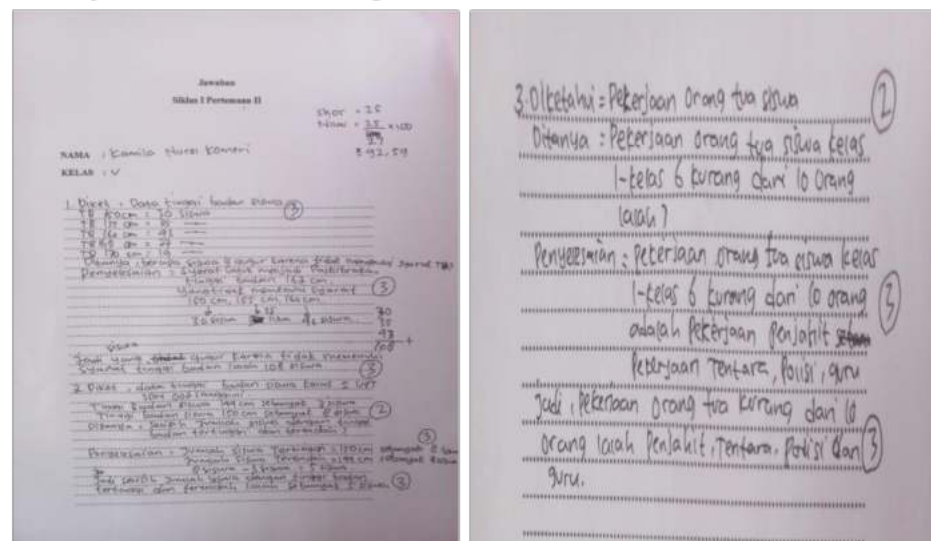 Jawaban
Siklus I Pertemuan II
Skor = 25
Nilai = 25 x 100
27
= 92,59
NAMA : Kamila Nurai
KELAS : V
1. Diket : Data tinggi badan siswa
3
TB 150 cm = 30 siswa
TB 155 cm = 35
TB 160 cm = 43
TB 165 cm = 27
TB 170 cm = 19
Ditanya : berapa siswa gugur karena tidak memenuhi syarat
Penyelesaian : Syarat untuk menjadi Paskibraka
tinggi badan
yang tidak memenuhi syarat
3
150 cm, 155 cm, 160 cm
30 siswa 35 siswa 43 siswa
30
35
43
108 +
siswa
Jadi yang gugur karena tidak memenuhi
syarat tinggi badan ialah 108 siswa
3
2. Diket : data tinggi badan siswa kelas
Tinggi badan siswa cm sebanyak 3 siswa
Tinggi badan siswa 150 cm sebanyak 8 siswa
2
Ditanya : selisih jumlah siswa dengan tinggi
badan tertinggi dan terendah ?
3
Penyelesaian : Jumlah siswa tertinggi = 150 cm sebanyak 8
Jumlah siswa terendah = cm sebanyak
8 siswa - 3 siswa = 5 siswa
Jadi selisih jumlah siswa dengan tinggi badan
tertinggi dan terendah ialah sebanyak 5 siswa
3
3. Diketahui = Pekerjaan orang tua siswa
2
Ditanya : Pekerjaan orang tua siswa kelas
1-kelas 6 kurang dari 10 orang
ialah ?
Penyelesaian : Pekerjaan orang tua siswa kelas
1-kelas 6 kurang dari 10 orang
3
adalah Pekerjaan Penjahit
Pekerjaan Tentara, Polisi, guru
Jadi, Pekerjaan orang tua kurang dari 10
orang ialah Penjahit, Tentara, Polisi dan
3
guru.